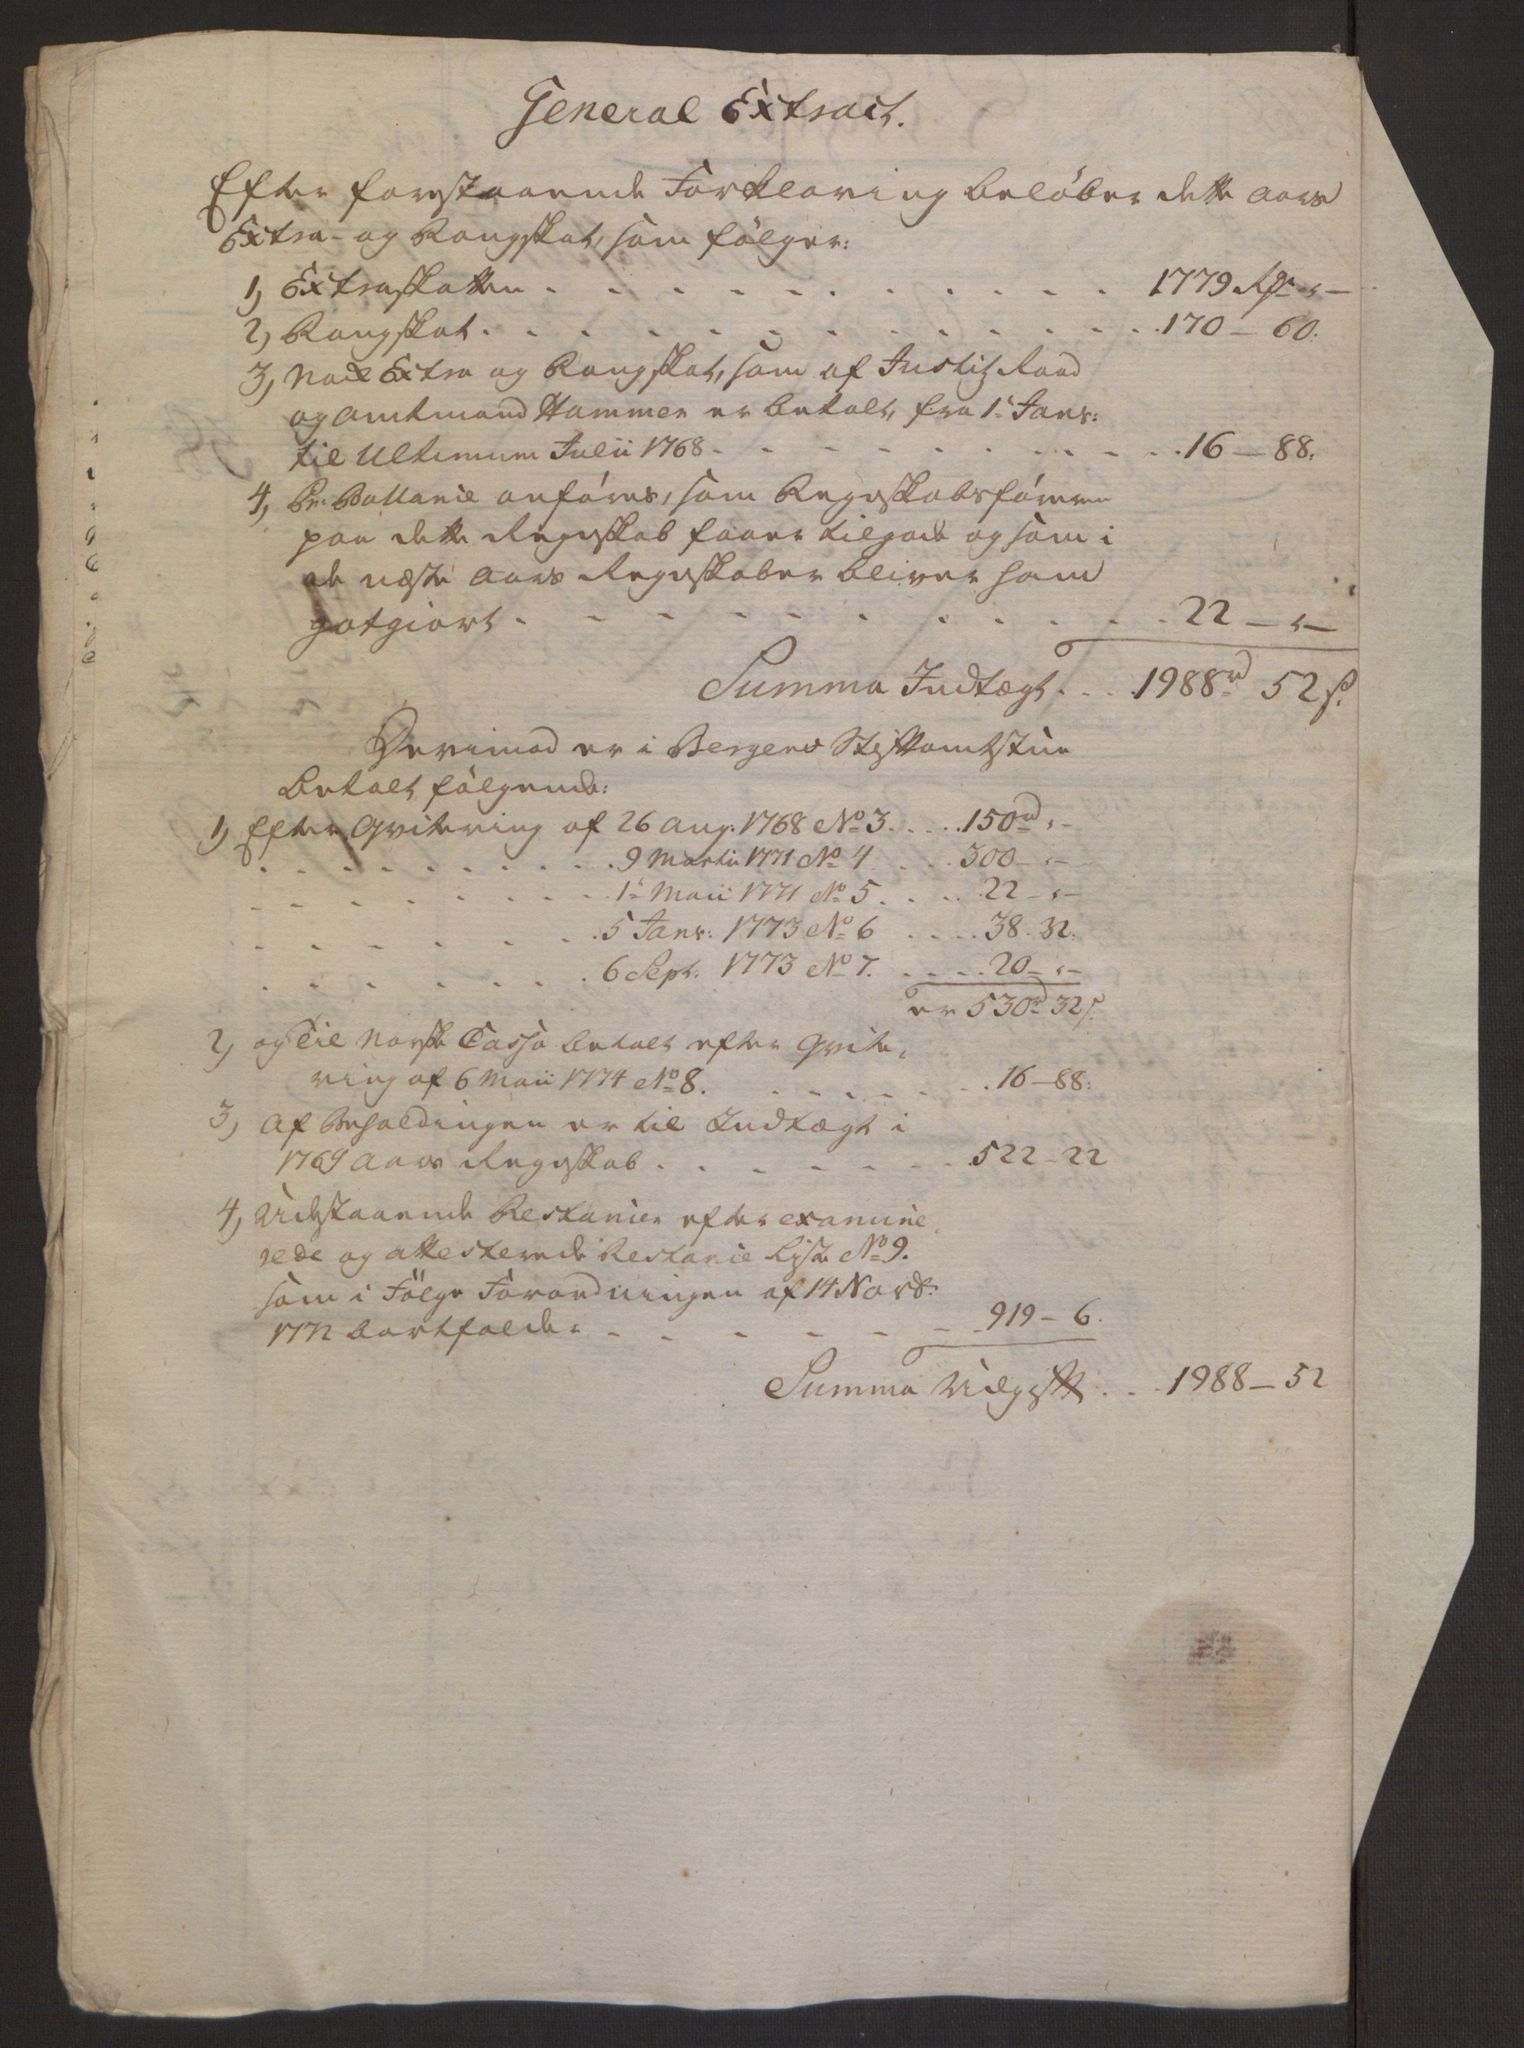 General Extract.
Efter foregaaende Forklaring beløber dette aars
Extra- og Rangskat, som følger:
1, Extraskatten . . . . . . . . . . . . 1779 Rdr „ —
2, Rangskat . . . . . . . . . . . . . . 170 — 60.
3, Nock Extra og Rangskat, som af Justitz Raad
og Amtmand Hammer er betalt, fra 1ᵗᵉ Janr:
til Ultimum Julii 1768 . . . . . . . . . . 16 — 88.
4, Pr. Ballance anføres, som Regnskabsføreren
paa dette Regnskab faaer tilgode og som i
de næste Aars Regnskaber bliver ham
gotgiort . . . . . . . . . . . 22 — „ —
Summa Indtægt . . . 1988rd 52 s.
Derimod er i Bergens Stiftamtstue
betalt følgende:
1, Efter Qvitering af 26 Aug. 1768 No 3 . . . . 150rd „ —
. . . . . . . . . 9 Martii 1771 No 4 . . . 300 — „ —
. . . . . . . . . 1ᵗᵉ Maii 1771 No 5 . . . . 22 — „ —
. . . . . . . . 5 Janr: 1773 No 6 . . . . 38. 32.
. . . . . . . . 6 Sept. 1773 No 7. . . . . 20 — „ —
er 530rd 32 s.
2, og Til Norske Cassa betalt efter Qvite-
ring af 6 Maii 1774 No 8. . . . . . . . 16 — 88.
3, Af Beholdingen er til Indtægt i
1769 Aars Regnskab . . . . . . . . 522 — 22
4, Udestaaende Restancier efter examine-
rede og attesterede Restance Liste No 9.
som i Følge Forordningen af 14 Novb:
1772 bortfalder . . . . . . . 919 — 6.
Summa Udgift . . . 1988 — 52